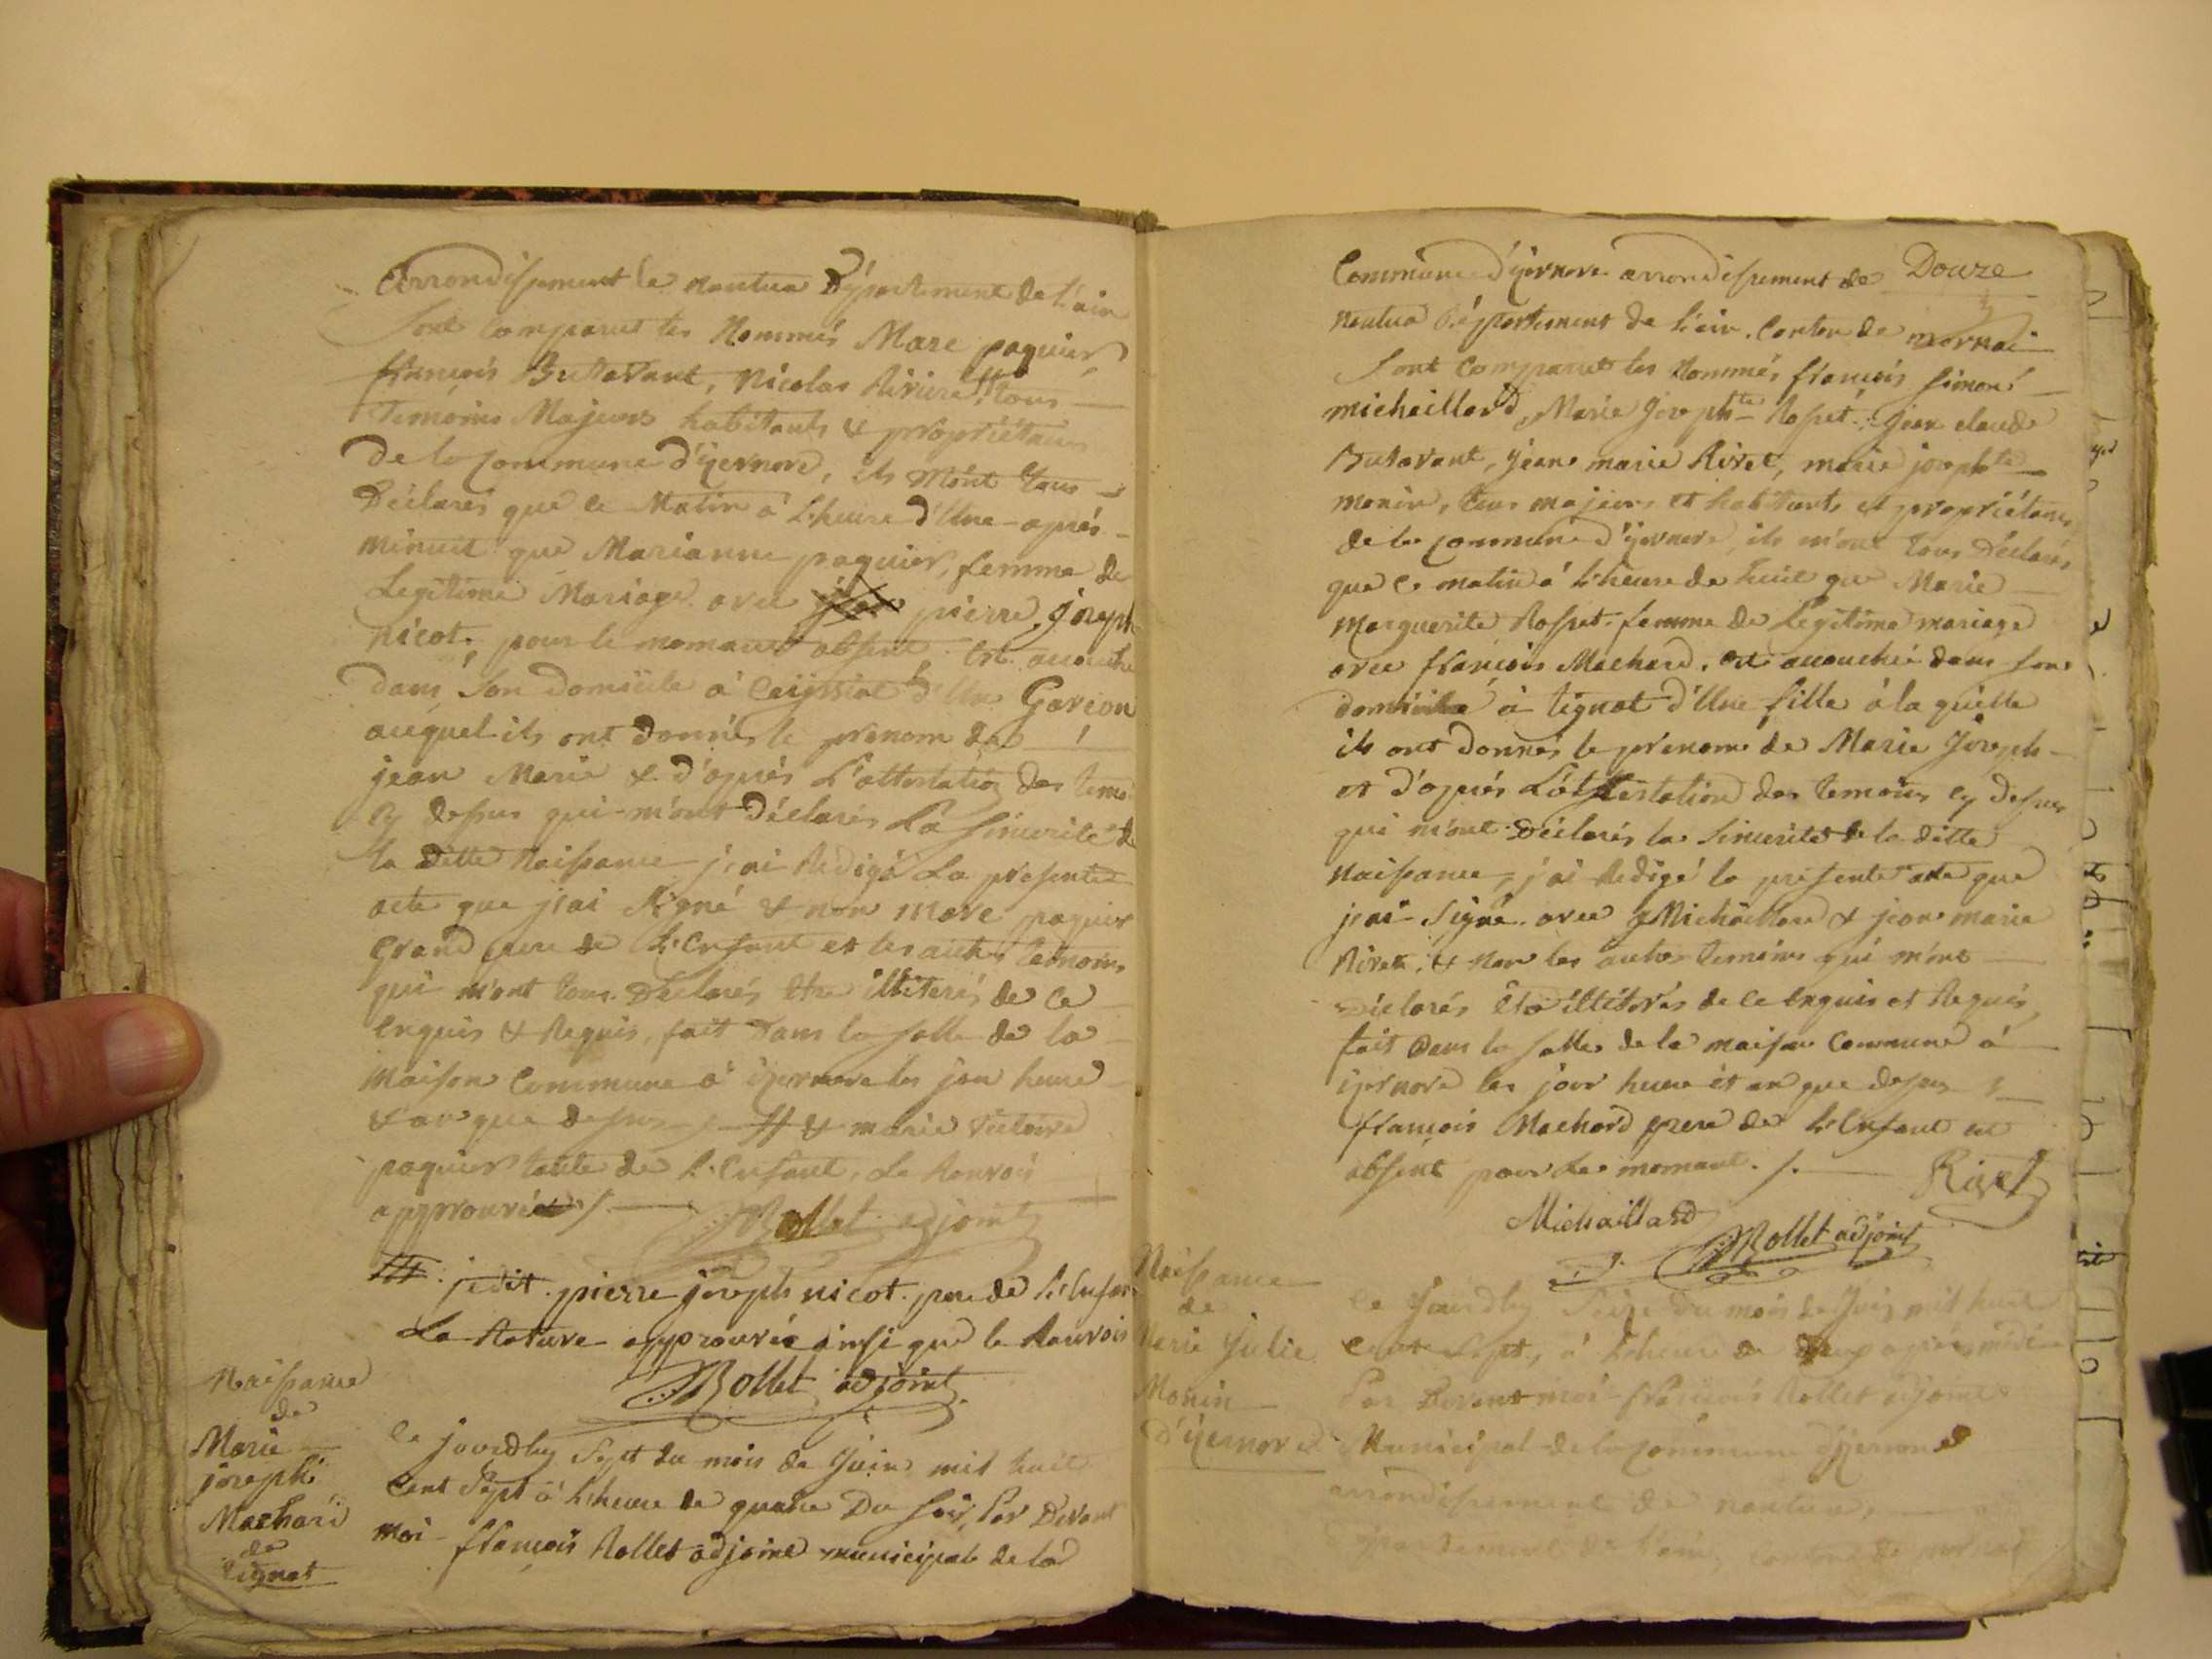 arrondissement de nantua Département de l'ain
Sont comparus les Nommés Marc paquier,
françois Butavant, Nicolas Riviere, # tous
Temoins Majeurs habitants & propriétaires
de la Commune d'yzernore, ils m'ont tous
Déclarés que ce Matin à l'heure d'Une après
minuit que Marianne paquier, femme de
Legitime Mariage avec pierre joseph
nicot, pour le momant absent Est accouchée
dans son domicile à Ceissiat d'Un Garcon
auquel ils ont donnés le prenom de
jean Marie & d'après L'attestation des temo
cy dessus qui m'ont Déclarés La sincerité de
la ditte Naissance j'ai Redigé La presente
acte que j'ai Signé & non Marc paquier
Grand pere de L'Enfant et les autres temoins
qui m'ont tous Déclarés être illiterés de ce
Enquis & Requis, fait Dans la salle de la
Maison Commune à izernore les jour heure
& an que dessus # & marie victoire
paquier tante de L'Enfant, Le Renvois
approuvée /.
Rollet adjoint
je dit pierre joseph nicot pere de L'enfan
La Rature approuvée insi que le Renvois
Rollet adjoint
Naissance
de
Marie
joseph
Machard
de
tignat
Le jourdhuy Sept du mois de Juin mil huit
Cent Sept à l'heure de quatre Du soir, Par Devant
Moi françois Rollet adjoint municipal de la
Commune d'yzernore arrondissement de Douze
nantua Département de l'ain. Canton de mornai
Sont Comparus les Nommés françois simon
michaillard, Marie Josephte Rosset, Jean claude
Butavant, jean marie Rivet, marie josephte
monin, tous majeurs et habitants et propriétaires
de la Commune d'yzernore, ils m'ont tous Déclarés
que ce matin à l'heure de huit que Marie
Marguerite Rosset femme de Legitime mariage
avec françois Machard, est accouchée dans son
domicile à tignat d'Une fille à la quelle
ils ont donnés le prenom de Marie Joseph
et d'après L'attestation des temoins cy dessus
qui m'ont Déclarés la sincerité de la ditte
Naissance, j'ai Redigé la présente acte que
j'ai Signé avec Michaillard & jean marie
Rivet, & Non les autres temoins qui m'ont
Déclarés être illitérés de ce Enquis et Requis,
fait dans la salle de la maison Commune à
izernore les jour heure et an que dessus
françois Machard pere de L'Enfant est
absent pour Le momant /.
Rivet
Michaillard
Rollet adjoint
Naissance
de
Marie Julie
Monin
D'yzernore
Le jourdhuy Seize du mois de Juin mil huit
Cent Sept, à l'heure de après midi
Par Devant moi françois Rollet adjoint
Municipal de la Commune d'yzernore
arrondissement de nantua,
département de l'ain, canton de mornai